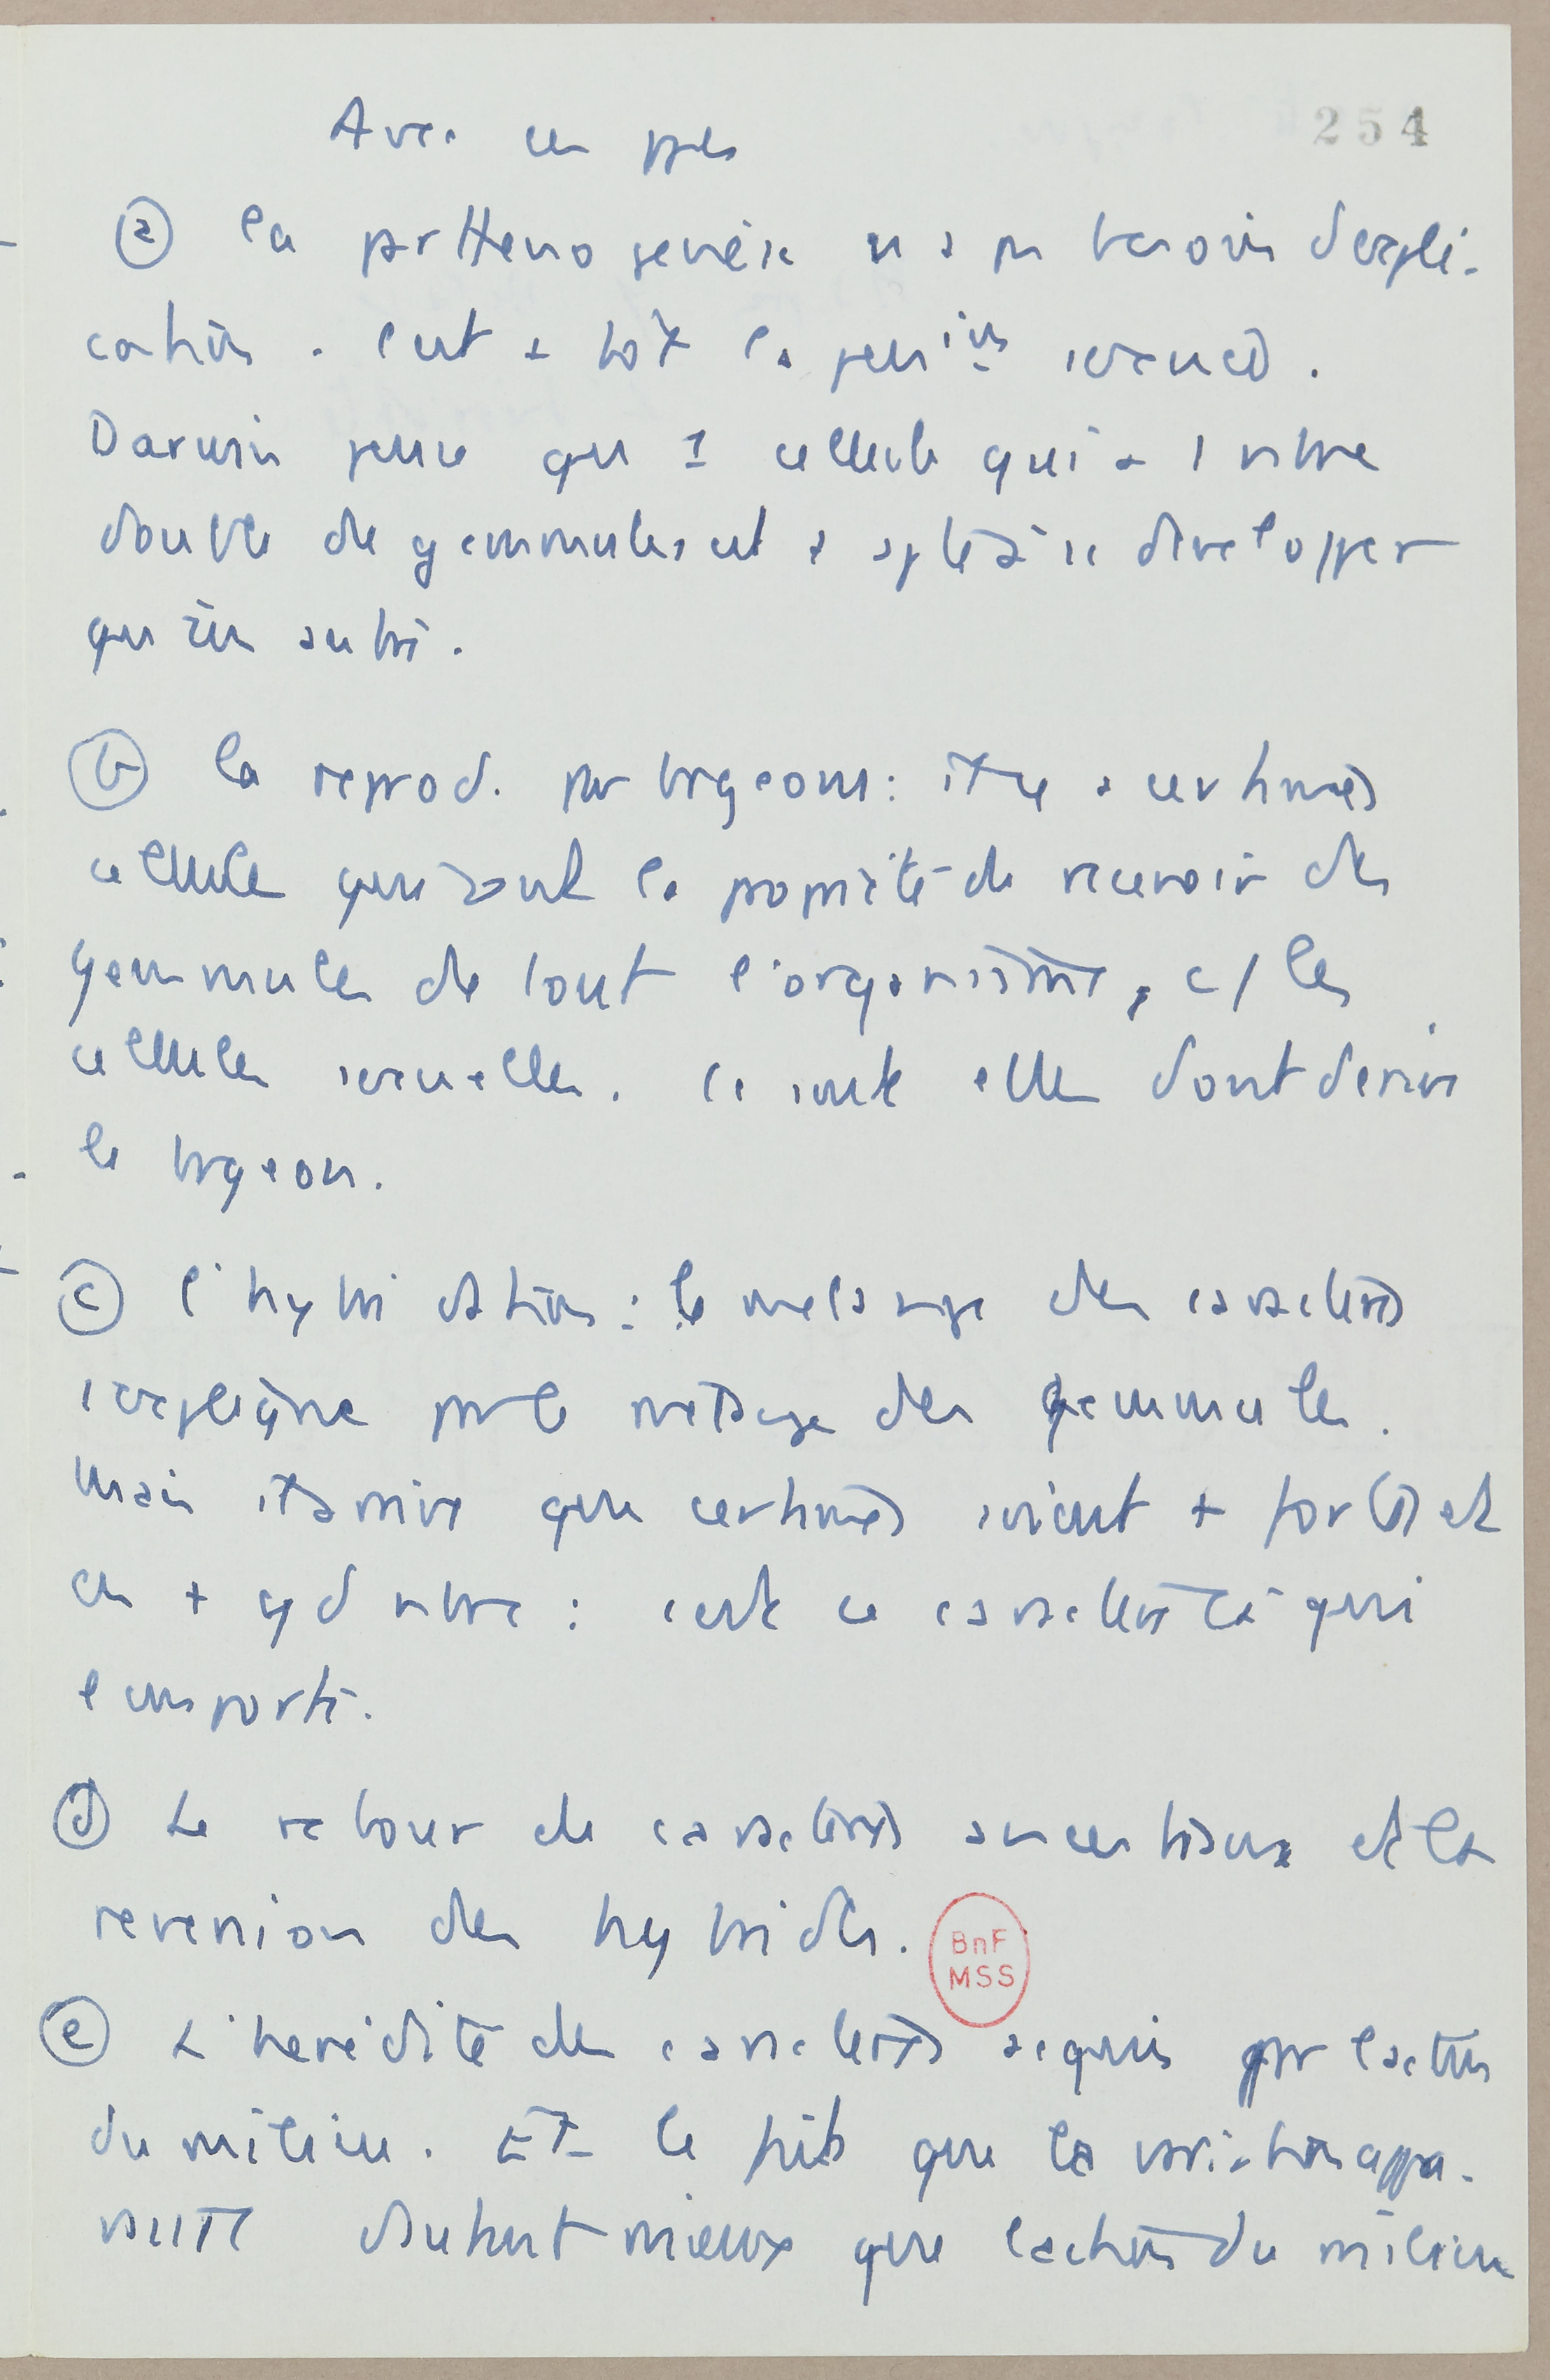 254
Avec ces ppes
(a) la parthenogenèse n'a pas besoin d'expli-
cation. C'est la sexués.
Darwin pense que 1 cellule qui a 1 nbre
double de gemmules est apte à se développer
qu'un autre.
(b) la reprod. par brgeons: il y a certaines
cellules qui ont la propriété de recevoir des
gemmules de tout l'organisme, c/ les
cellules sexuelles. Ce sont elles dont derive
le brgeon.
(c) l'hybridation: le melange des caractères
s'explique par le metissage des gemmules.
Mais il arrive que certaines soient + fortes et
en + gd nbre: c'est ce caractère là qui
l'emporte.
(d) Le retour de caractères ancestraux et la
reversion des hybrides.
BnF
MSS
(e) L'heredité des caractères acquis par l'action
du milieu. Et le fait que la variation appa-
raisse d'autant mieux que l'action du milieu